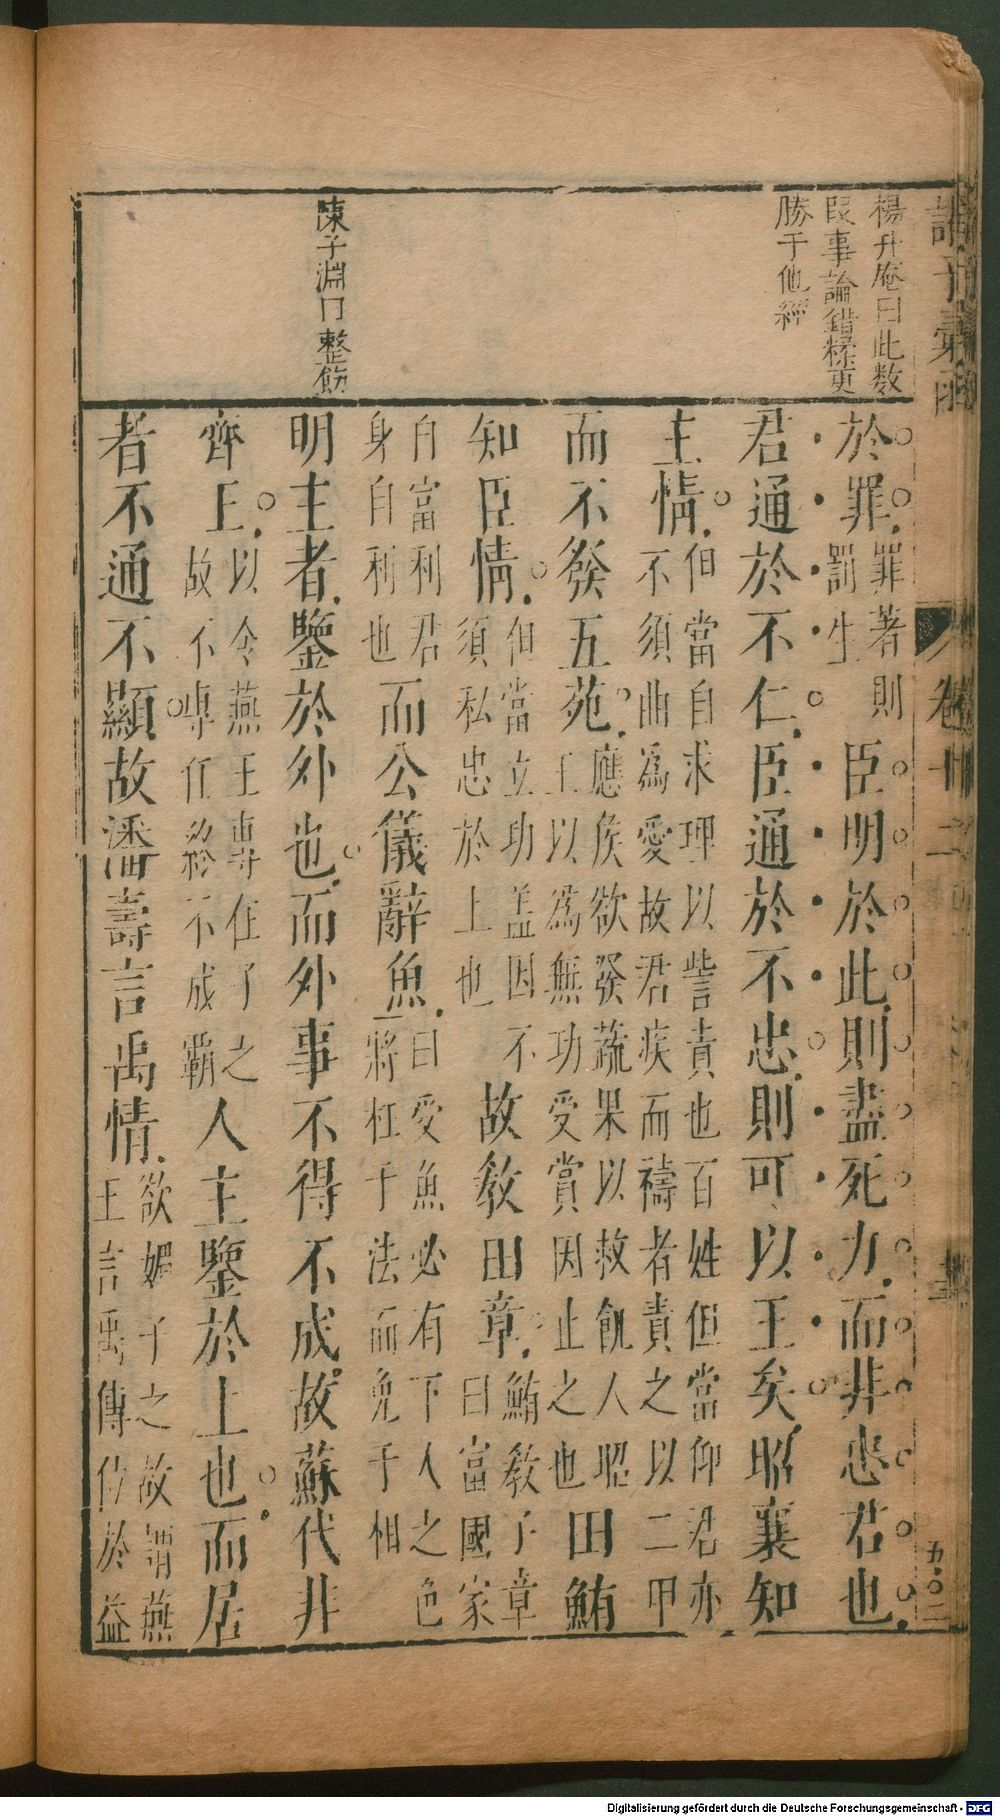 楊升庵曰此数
段事論錯綜更
勝于他經
陳子淵曰整飭
於罪罪著則罰生臣明於此則盡死力而非忠君也
君通於不仁臣通於不忠則可以王矣昭襄知
主情但當自求理以訾責也百姓但當仰君亦不須曲為愛故君疾而禱者責之以二甲
而不發五苑應侯欲發蔬果以救飢人昭王以為無功受賞因止之也田鮪
知臣情但當立功盖因不須私忠於上也故敎田章鮪敎子章曰富國家
自富利君身自利也而公儀辭魚曰受魚必有下人之色將枉于法而免于相
明主者鑒於外也而外事不得不成故蘇代非
齊王以令燕王專任子之故不專任終不成霸人主鑒於上也而居
者不通不顯故潘壽言禹情欲媚子之故謂燕王言禹傳位於益
諸子彙函
卷十二
五〇二
Digitalisierung gefördert durch die Deutsche Forschungsgemeinschaft - DFG